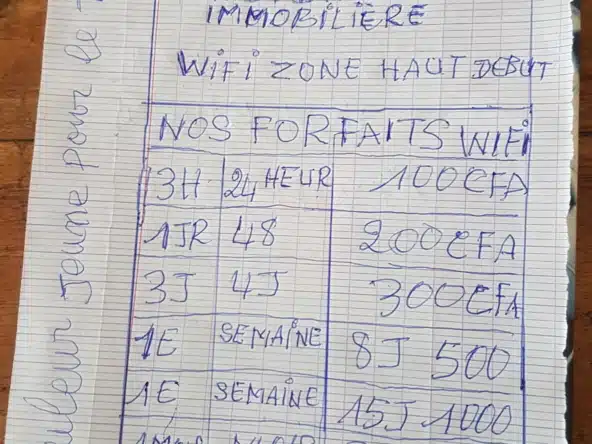 IMMOBILIÈRE
WIFI ZONE HAUT DEBUT
NOS FORFAITS WIFI
3H 24 HEUR 100 CFA
1JR 48 200 CFA
3J 4J 300 CFA
1E SEMAINE 8J 500
1E SEMAINE 15J 1000
Jaune pour le